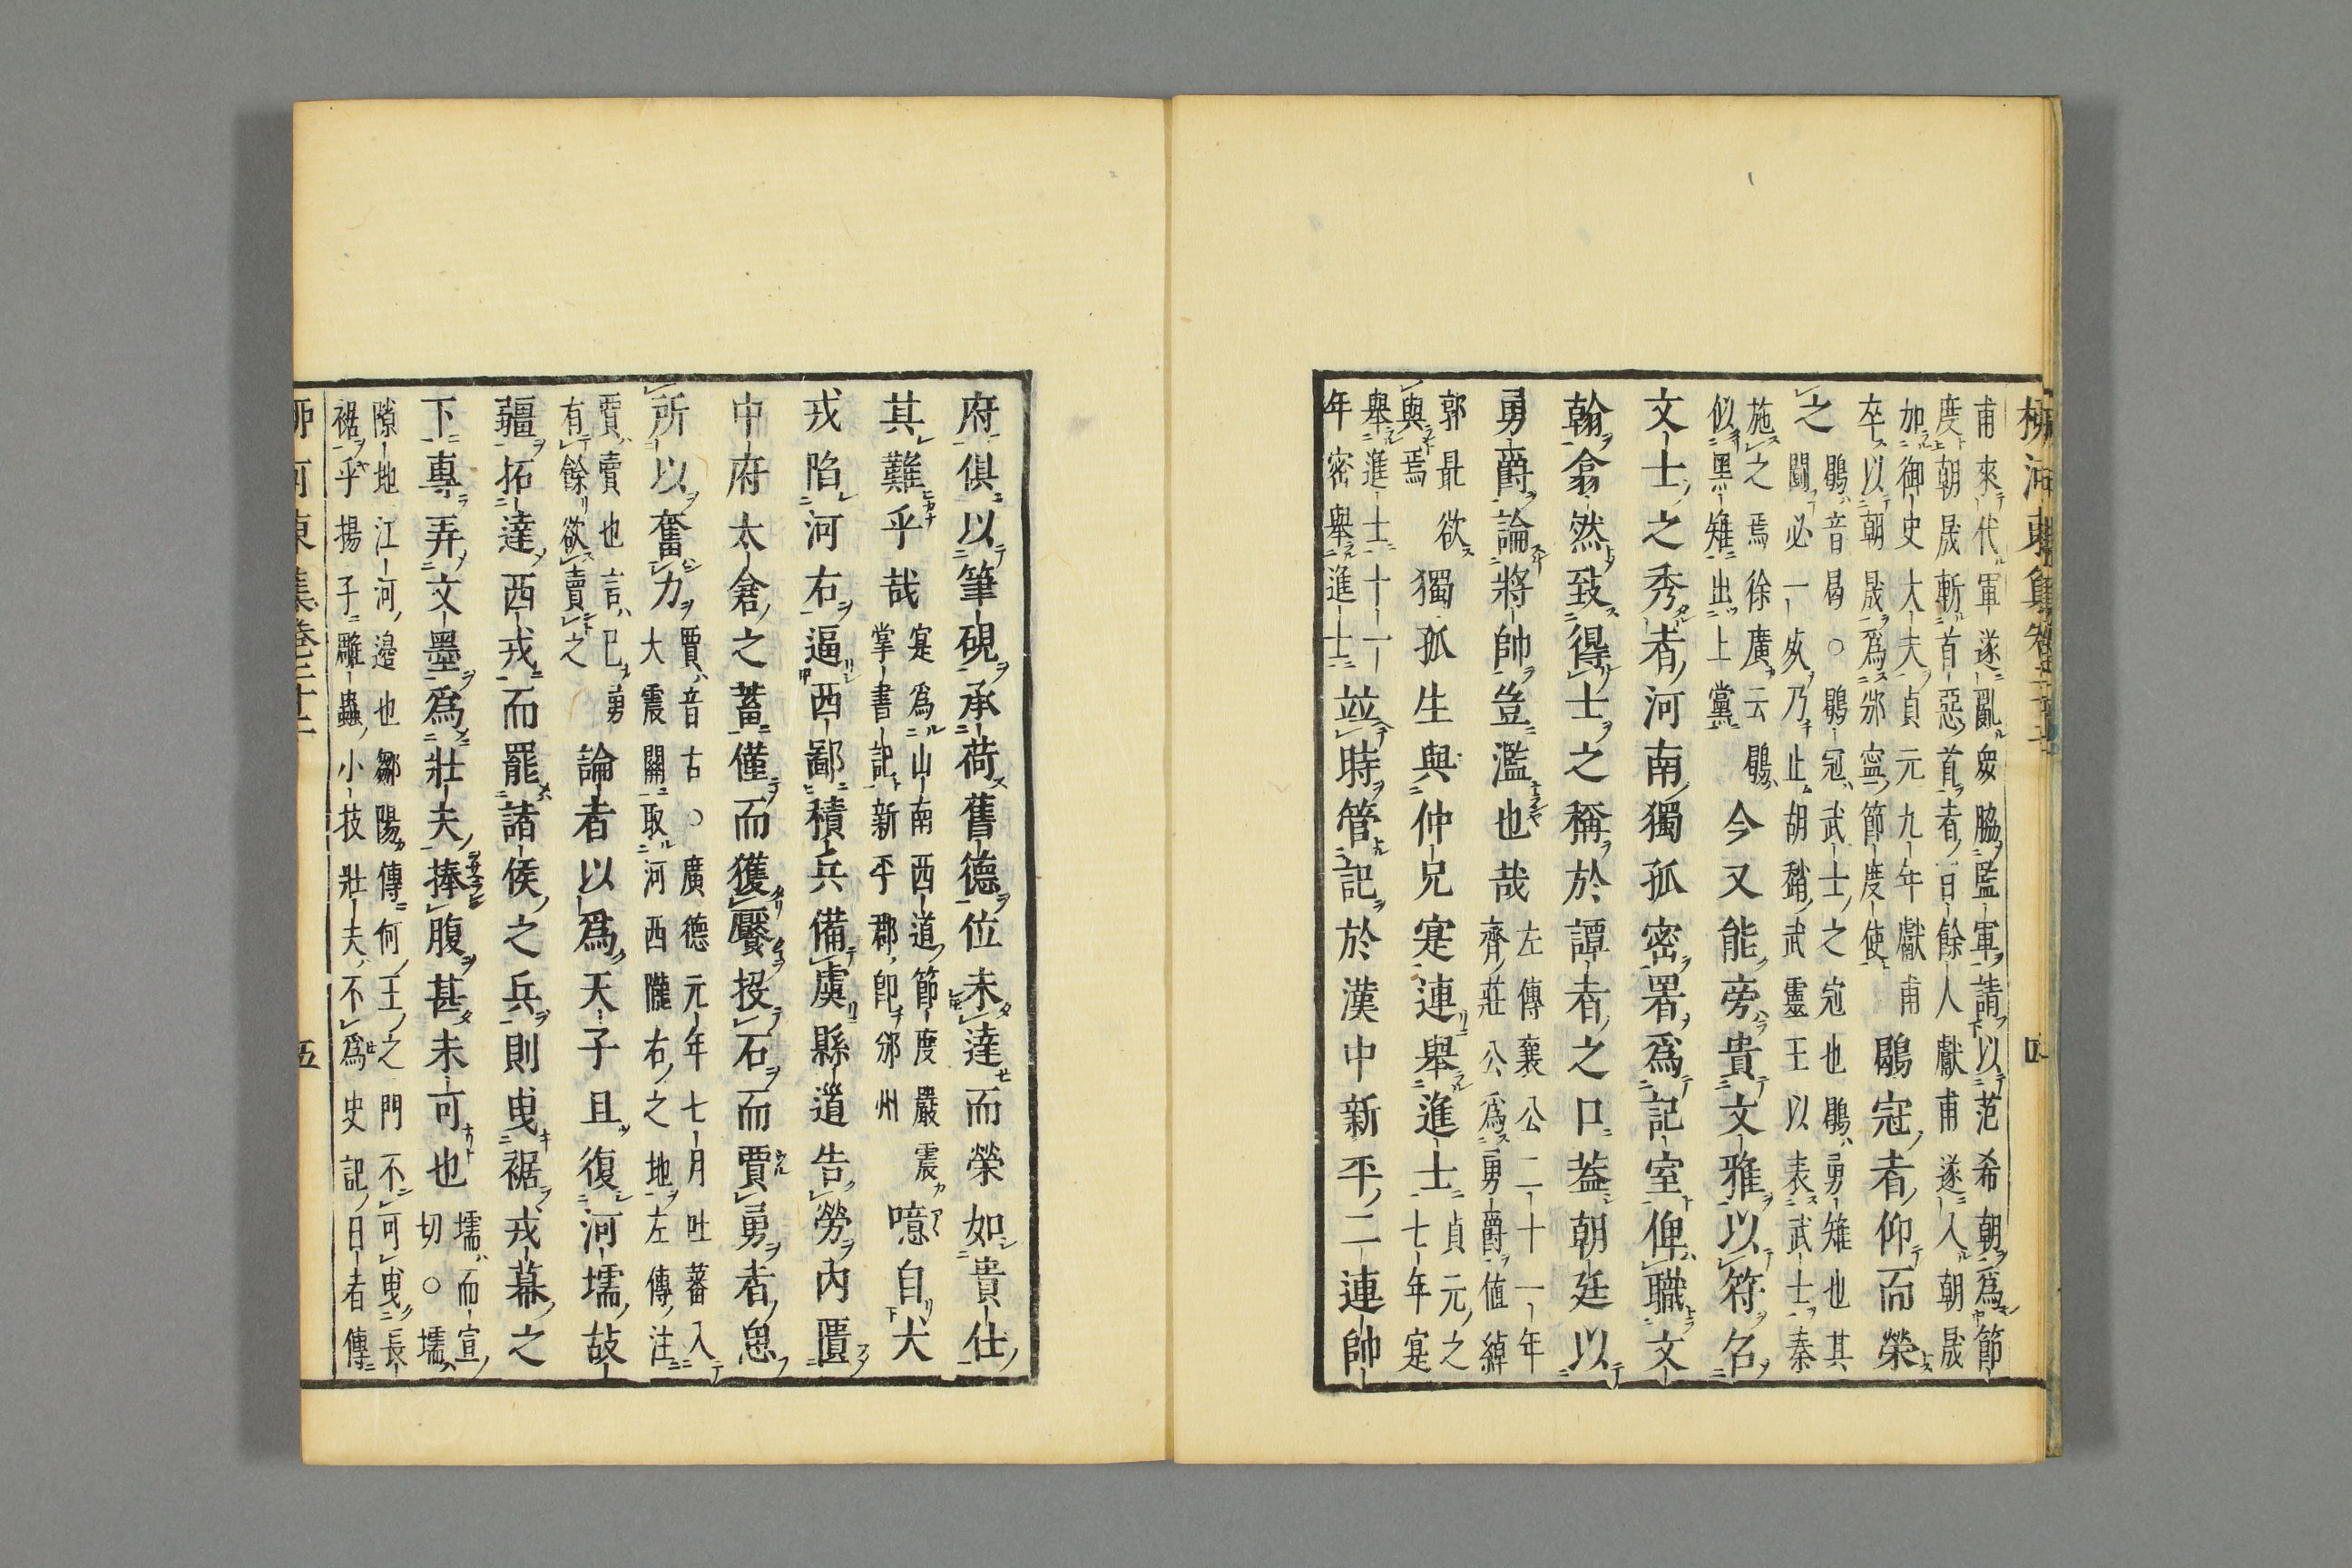 柳河東集卷二十二　四
甫來代軍遂亂衆脇監軍請以范希朝爲節
度朝晟斬首惡首者百餘人獻甫遂人朝晟
加御史大夫貞元九年獻甫
卒以朝晟爲邠寧節度使
鶡冠者仰而榮
之
鶡音曷○鶡冠武士之冠也鶡勇雉也其
鬪必一死乃止胡武靈王以表武士秦
施之焉徐廣云鶡
似黑雉出上黨
今又能旁貴文雅以符名
文士之秀者河南獨孤密署爲記室俾職文
翰翕然致得士之稱於譚者之口葢朝廷以
勇爵論將帥豈濫也哉
左傳襄公二十一年
齊莊公爲勇爵值綽
郭最欲
與焉
獨孤生與仲兄寔連舉進士
貞元之
七年寔
舉進士十一
年密舉進士
竝時管記於漢中新平二連帥
府俱以筆硯承荷舊德位未達而榮如貴仕
其難乎哉
寔爲山南西道節度嚴震
掌書記新平郡卽邠州
噫自犬
戎陷河右逼西鄙積兵備虞縣道告勞內匱
中府太倉之蓄僅而獲饜投石而賈勇者思
所以奮力
賈音古○廣德元年七月吐蕃入
大震關取河西隴右之地左傳注
賈賣也言巳勇
有餘欲賣之
論者以爲天子且復河壖故
疆拓達西戎而罷諸侯之兵則曳裾戎幕之
下專弄文墨爲壯夫捧腹甚未可也
壖而宣
切○壖
隙地江河邊也鄒陽傳何王之門不可曳長
裾乎揚子雕蟲小技壯夫不爲史記日者傳
柳河東集卷二十二　五